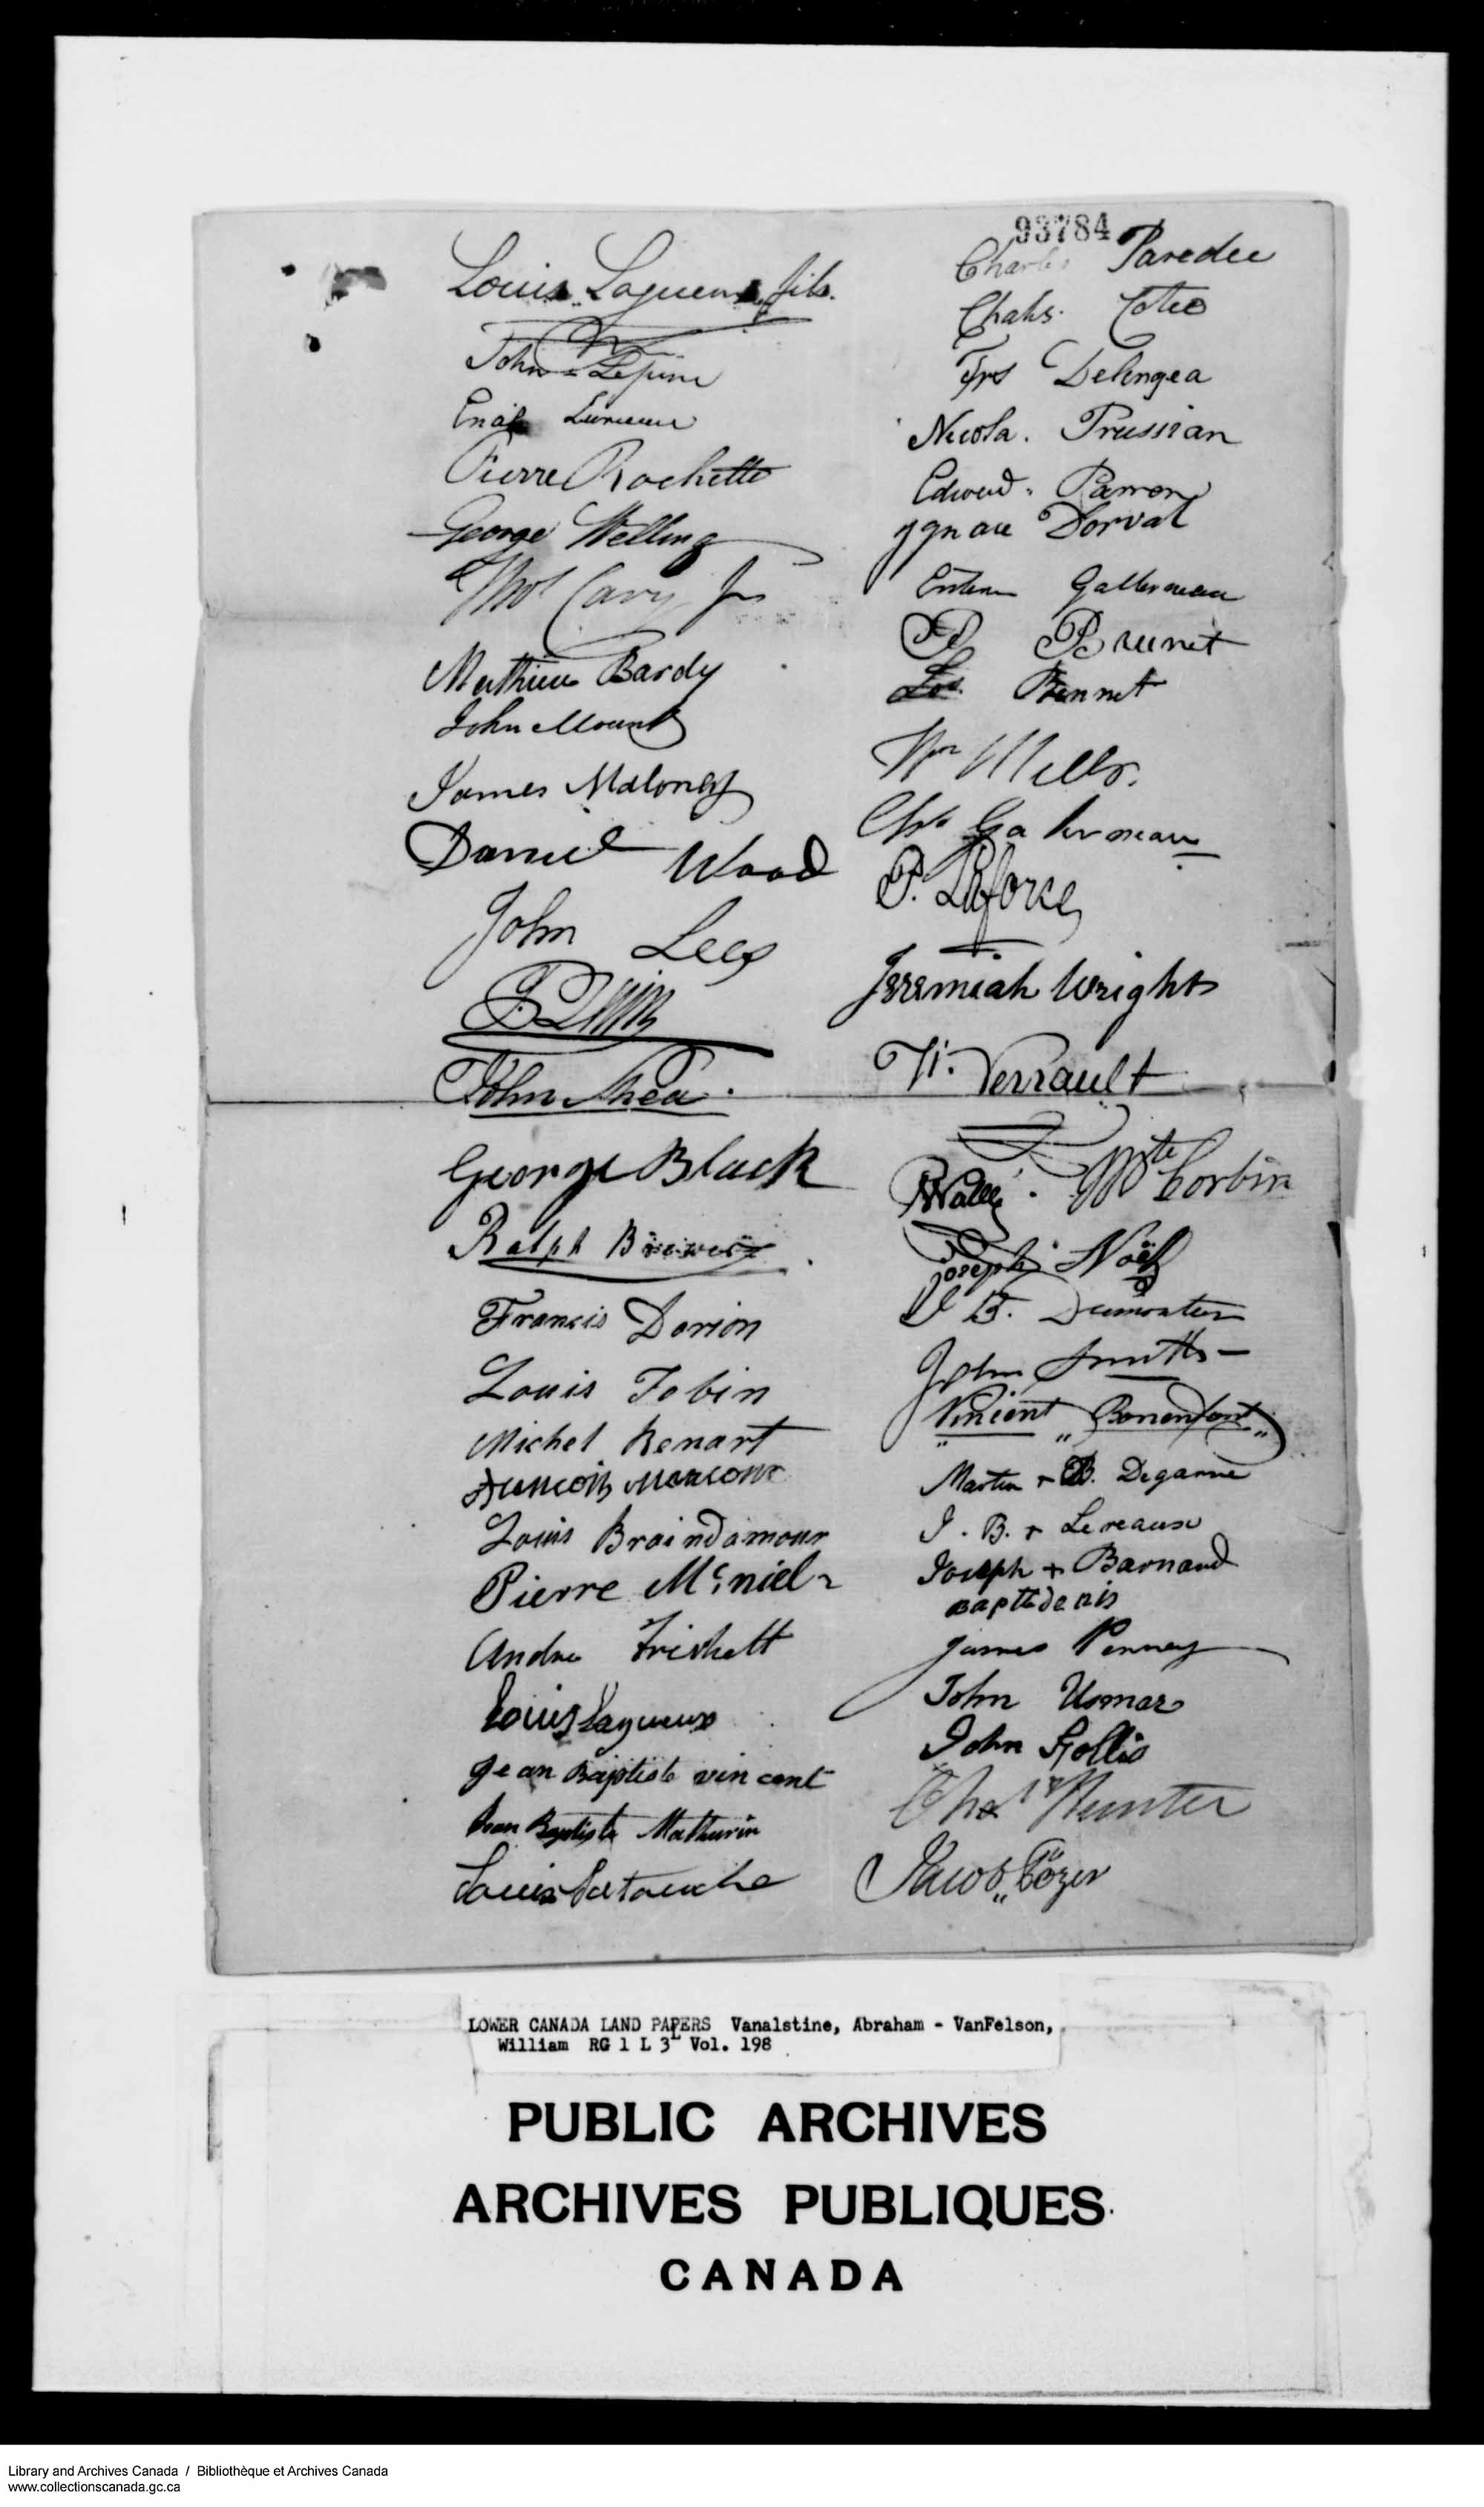 93784
Louis Lagueux fils.
John Lejeune
Pierre Rochette
George Welling
Thos Cary Jr
Mathieu Bardy
John Mount
James Maloney
Daniel Wood
John Lees
John Shea.
George Black
Ralph Brewer
Francis Dorion
Louis Tobin
Michel Renart
francois marcoux
Louis Braindamour
Pierre Mc.niel
Andre Frichett
Louis Lagueux
Jean Baptiste vincent
Jean Baptiste Mathurin
Louis Latouche
Charles Paredee
Chals. Cotee
Frs Delengea
Nicola. Prussian
Edward. Parron
ygnace Dorval
Galerneau
P Brunet
Los. Bennet
Wm Mills.
Chs Galerneau
P. Laforce
Jeremiah Wright
Verrault
Mte Corbin
Joseph Noël
J B. Dumontier
John Smith
Vincent „ Bonenfant „
Martin + B. Degarne
J. B. + Lereaux
Joseph + Barnard
Baptt denis
James Penney
John Usmar
John Hollis
Chas Hunter
Jacob Pozer
LOWER CANADA LAND PAPERS Vanalstine, Abraham - VanFelson,
William RG 1 L 3L Vol. 198
PUBLIC ARCHIVES
ARCHIVES PUBLIQUES
CANADA
Library and Archives Canada / Bibliothèque et Archives Canada
www.collectionscanada.gc.ca